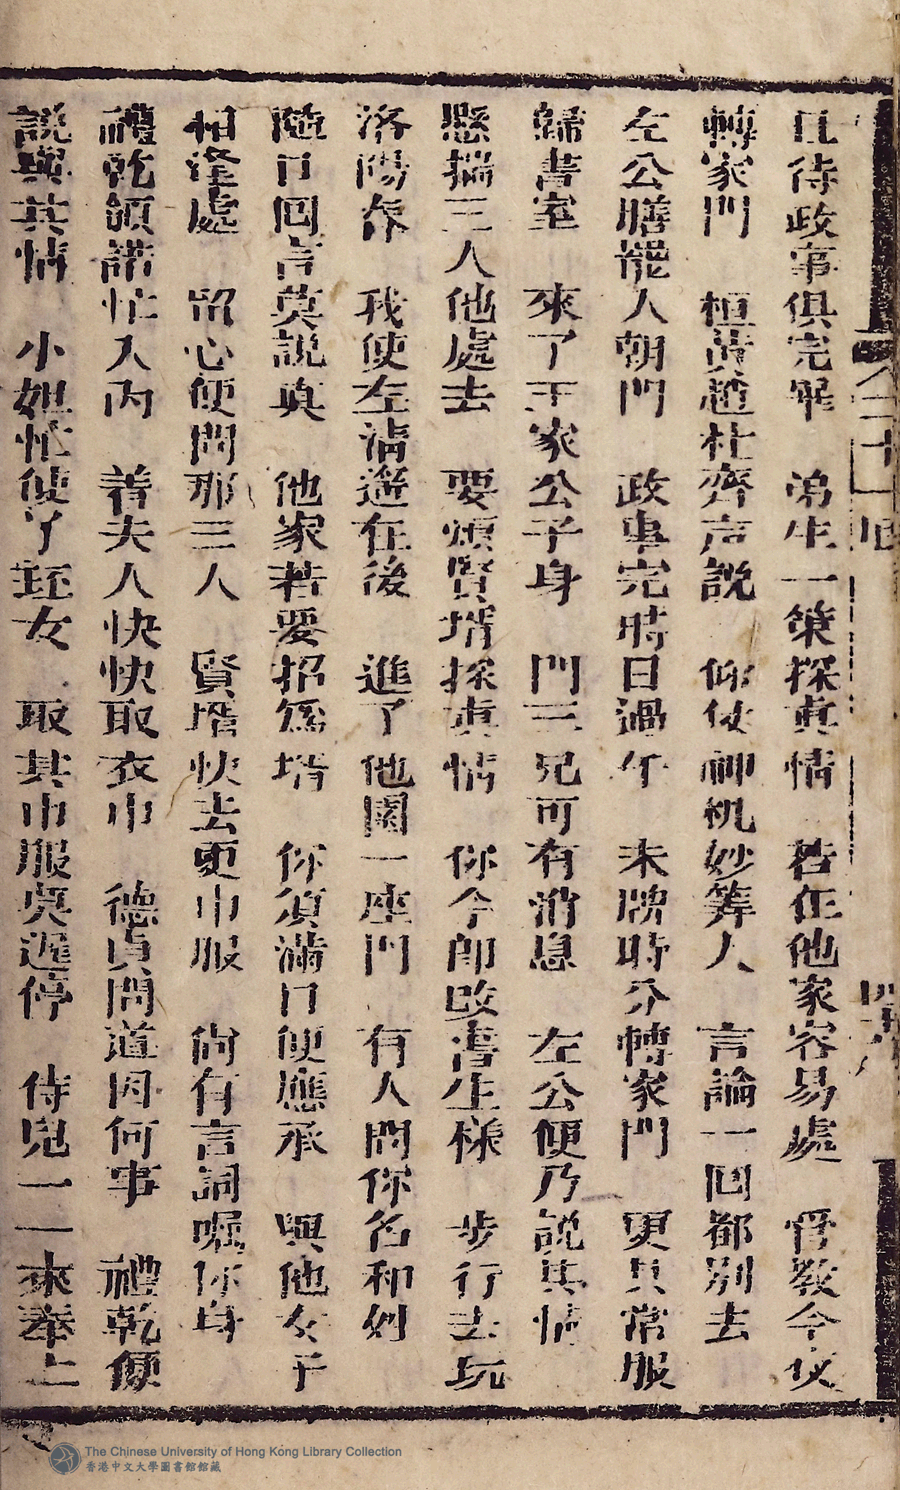 且待政事俱完畢　弟生一策探真情　若在他家容易處　管教今夜
轉家門　桓黃趙杜齊声說　仰仗神机妙筭人　言論一囬都别去
左公膳罷人朝門　政事完時日過午　未牌時分轉家門　更其常服
歸書室　來了王家公子身　門三兄可有消息　左公便乃說其情
懸揣三人他處去　要煩賢壻探真情　你今即改書生樣　步行去玩
洛陽春　我使左清遊在後　進了他園一座門　有人問你名和姓
隨口囬言莫說真　他家若要招爲壻　你須滿口便應承　與他女子
相逢處　留心便問那三人　賢壻快去更巾服　尚有言詞囑你身
禮乾領諾忙入内　善夫人快快取衣巾　德貞問道因何事　禮乾便
說與其情　小姐忙使丫鬟女　取其巾服莫遲停　侍兒一一來奉上
The Chinese University of Hong Kong Library Collection
香港中文大學圖書館館藏